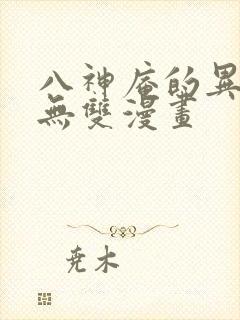 八神庵的異
無雙漫畫
尭木